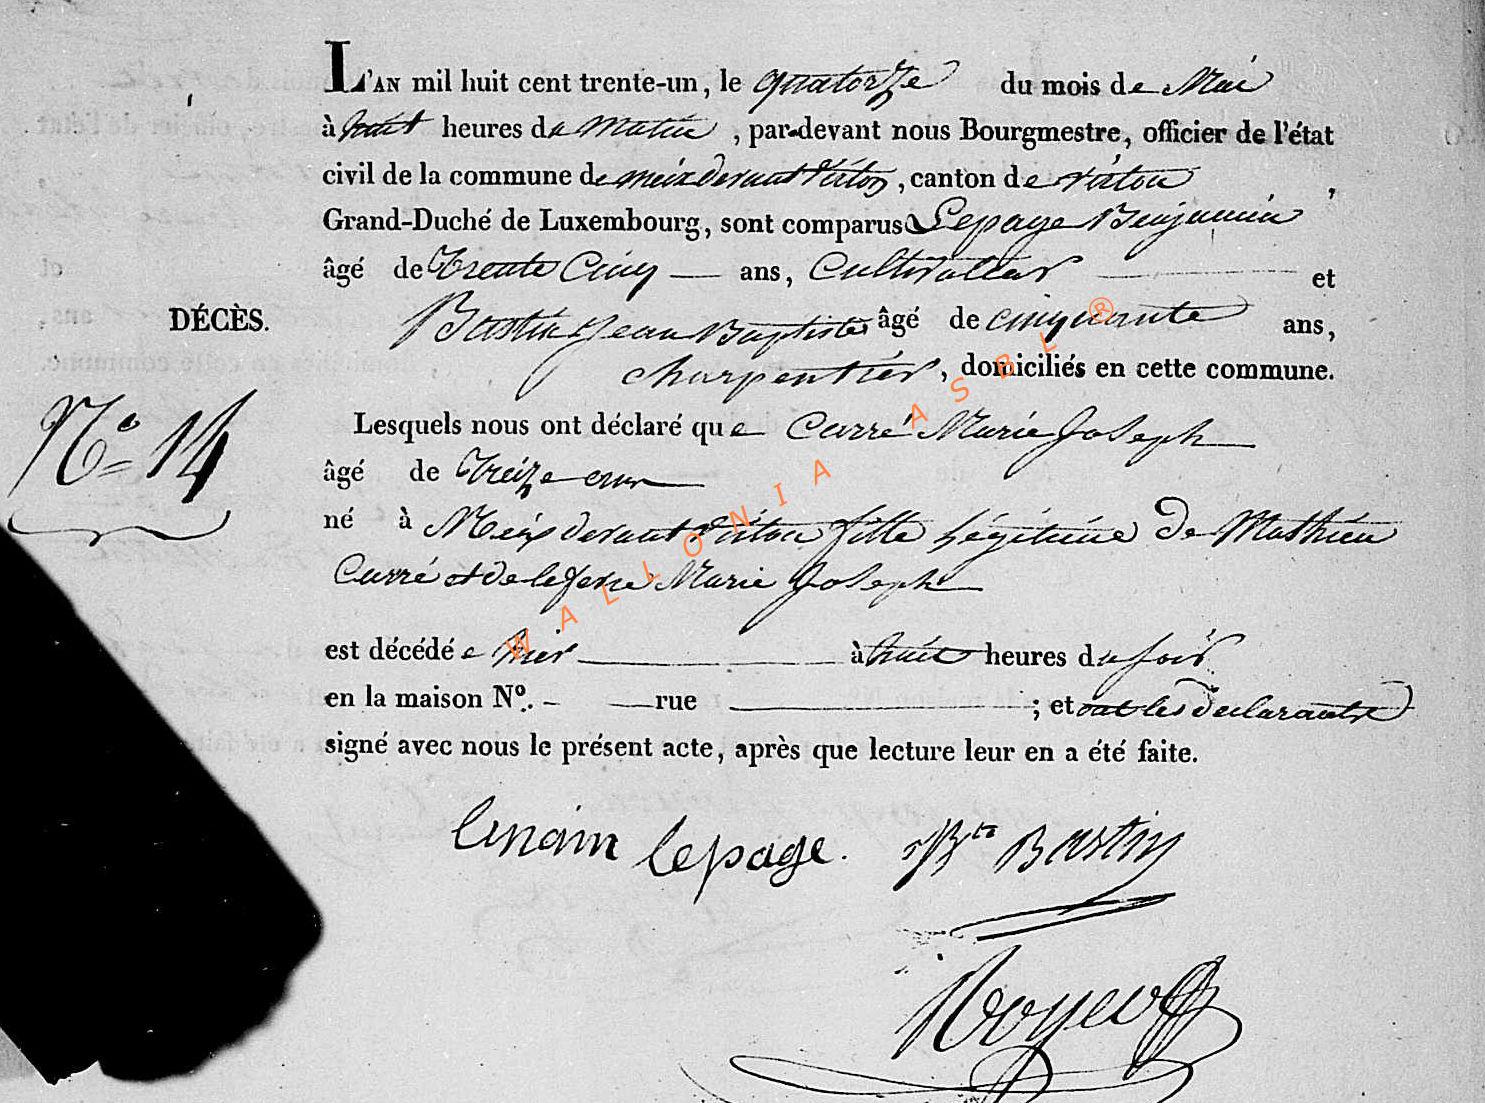 L'AN mil huit cent trente-un, le quatorze du mois de Mai
à huit heures du Matin, par-devant nous Bourgmestre, officier de l'état
civil de la commune de meix devant Virton, canton de virton,
Grand-Duché de Luxembourg, sont comparus Lepage Benjamin
âgé de Trente Cinq ans, Cultivateur et
DÉCÈS.
Bastin Jean Baptiste âgé de cinquante ans,
charpentier, domiciliés en cette commune.
N° 14
Lesquels nous ont déclaré que Carré Marie Joseph
âgé de Treize ans
né à Meix devant Virton fille Légitime de Mathieu
Carré et de Marie Joseph
est décédée hier à huit heures du soir
en la maison N°. rue ; et ont les déclarants
signé avec nous le présent acte, après que lecture leur en a été faite.
lepage. Bte Bastin
WALLONIA ASBL ®